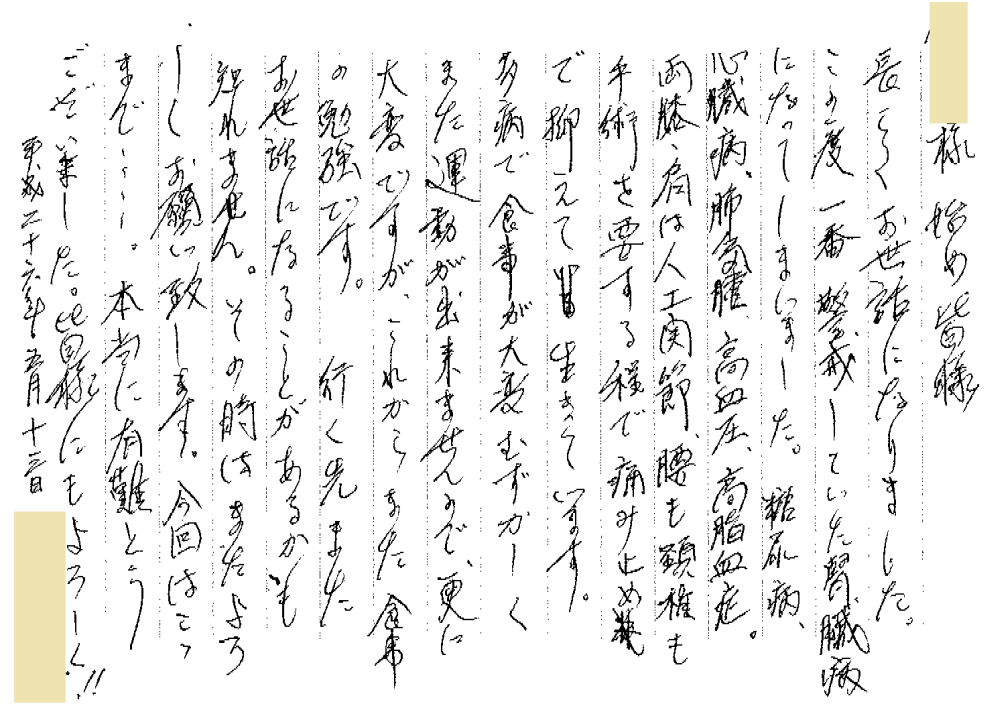 様 始め皆様
長らくお世話になりました。
この度一番警戒していた腎臓病
になってしまいました。糖尿病、
心臓病、肺気腫、高血圧、高脂血症。
両膝、肩は人工関節、腰も頚椎も
手術を要する程で痛み止め
で抑えて 生きています。
多病で食事が大変むずかしく
また運動が出来ませんので、更に
大変ですが、これからまた食事
の勉強です。 行く先また
お世話になることがあるかも
知れません。その時はまたよろ
しくお願い致します。今回はここ
まで…。本当に有難とう
ございました。皆様にもよろしく!!
平成二十六年五月十三日